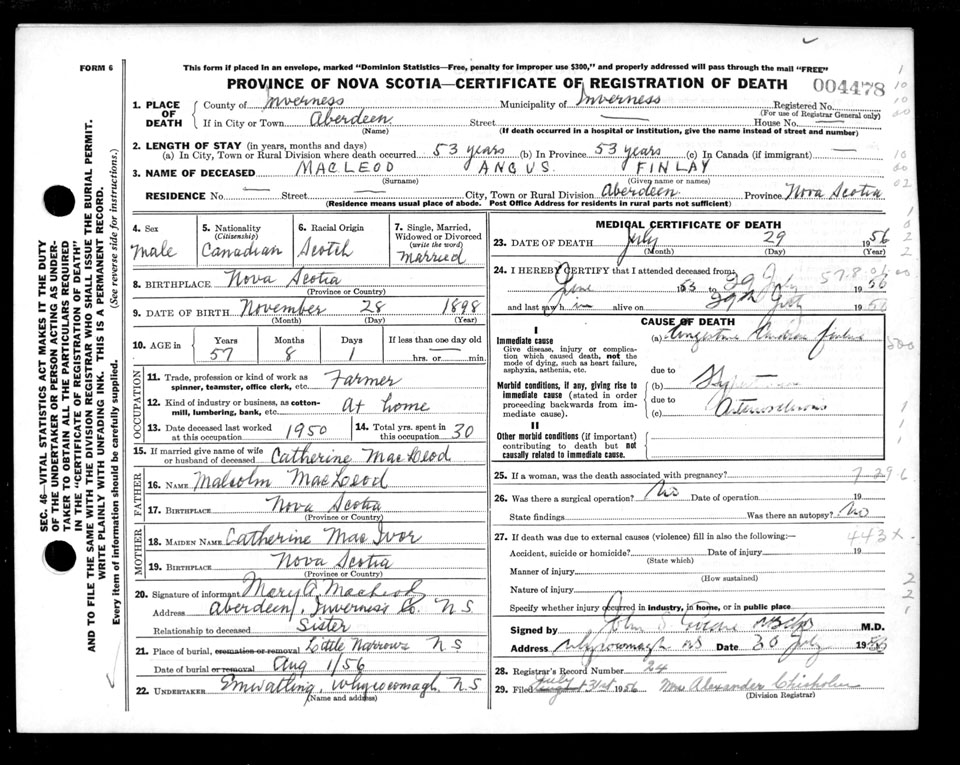 FORM 6
This form if placed in an envelope, marked "Dominion Statistics—Free, penalty for improper use $300," and properly addressed will pass through the mail "FREE"
PROVINCE OF NOVA SCOTIA—CERTIFICATE OF REGISTRATION OF DEATH 004478
SEC. 46—VITAL STATISTICS ACT MAKES IT THE DUTY
OF THE UNDERTAKER OR PERSON ACTING AS UNDER-
TAKER TO OBTAIN ALL THE PARTICULARS REQUIRED
IN THE "CERTIFICATE OF REGISTRATION OF DEATH"
AND TO FILE THE SAME WITH THE DIVISION REGISTRAR WHO SHALL ISSUE THE BURIAL PERMIT.
WRITE PLAINLY WITH UNFADING INK. THIS IS A PERMANENT RECORD.
Every item of information should be carefully supplied. (See reverse side for instructions.)
1. PLACE OF DEATH County of Inverness Municipality of Inverness Registered No.
(For use of Registrar General only)
If in City or Town Aberdeen Street — House No. —
(Name) (If death occurred in a hospital or institution, give the name instead of street and number)
2. LENGTH OF STAY (in years, months and days)
(a) In City, Town or Rural Division where death occurred 53 years (b) In Province 53 years (c) In Canada (if immigrant) —
3. NAME OF DECEASED MACLEOD ANGUS FINLAY
(Surname) (Given name or names)
RESIDENCE No. — Street — City, Town or Rural Division Aberdeen Province Nova Scotia
(Residence means usual place of abode. Post Office Address for residents in rural parts not sufficient)
4. Sex Male
5. Nationality (Citizenship) Canadian
6. Racial Origin Scotch
7. Single, Married, Widowed or Divorced (write the word) Married
8. BIRTHPLACE Nova Scotia
(Province or Country)
9. DATE OF BIRTH November 28 1898
(Month) (Day) (Year)
10. AGE in Years Months Days If less than one day old
57 8 1 hrs. or min.
OCCUPATION
11. Trade, profession or kind of work as spinner, teamster, office clerk, etc. Farmer
12. Kind of industry or business, as cotton-mill, lumbering, bank, etc. At home
13. Date deceased last worked at this occupation 1950
14. Total yrs. spent in this occupation 30
15. If married give name of wife or husband of deceased Catherine MacLeod
FATHER
16. NAME Malcolm MacLeod
17. BIRTHPLACE Nova Scotia
(Province or Country)
MOTHER
18. MAIDEN NAME Catherine MacIvor
19. BIRTHPLACE Nova Scotia
(Province or Country)
20. Signature of informant Mary A. MacLeod
Address Aberdeen, Inverness Co. N S
Relationship to deceased Sister
21. Place of burial, cremation or removal Little Narrows N S
Date of burial or removal Aug 1/56
22. UNDERTAKER Whycocomagh, N.S
(Name and address)
MEDICAL CERTIFICATE OF DEATH
23. DATE OF DEATH July 29 1956
(Month) (Day) (Year)
24. I HEREBY CERTIFY that I attended deceased from:
June 1953 to 29 July 1956
and last saw him alive on 29th July 1956
CAUSE OF DEATH
I
Immediate cause
Give disease, injury or complication which caused death, not the mode of dying, such as heart failure, asphyxia, asthenia, etc.
(a) Congestive Cardiac failure
due to
Morbid conditions, if any, giving rise to immediate cause (stated in order proceeding backwards from immediate cause).
(b) Hypertension
due to
(c) Arteriosclerosis
II
Other morbid conditions (if important) contributing to death but not causally related to immediate cause.
25. If a woman, was the death associated with pregnancy?
26. Was there a surgical operation? No Date of operation 19
State findings Was there an autopsy? No
27. If death was due to external causes (violence) fill in also the following:— 443X
Accident, suicide or homicide? Date of injury 19
(State which)
Manner of injury
(How sustained)
Nature of injury
Specify whether injury occurred in industry, in home, or in public place
Signed by John M.D.
Address Whycocomagh NS Date 30 July 1956
28. Registrar's Record Number 24
29. Filed July 31st 1956 Mrs Alexander Chisholm
(Division Registrar)